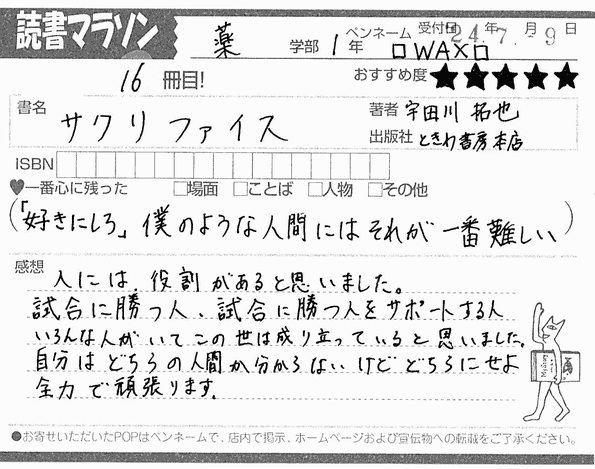 読書マラソン
薬 学部 1年 ペンネーム □WAX□ 受付日 24年 7月 -9日
16 冊目! おすすめ度 ★★★★★
書名 サクリファイス
著者 宇田川 拓也
出版社 ときわ書房本店
ISBN
♥一番心に残った □場面 □ことば □人物 □その他
(「好きにしろ」僕のような人間にはそれが一番難しい)
感想
人には、役割があると思いました。
試合に勝つ人、試合に勝つ人をサポートする人
いろんな人がいてこの世は成り立っていると思いました。
自分はどちらの人間か分からないけどどちらにせよ
全力で頑張ります。
●お寄せいただいたPOPはペンネームで、店内で掲示、ホームページおよび宣伝物への転載をご了承ください。